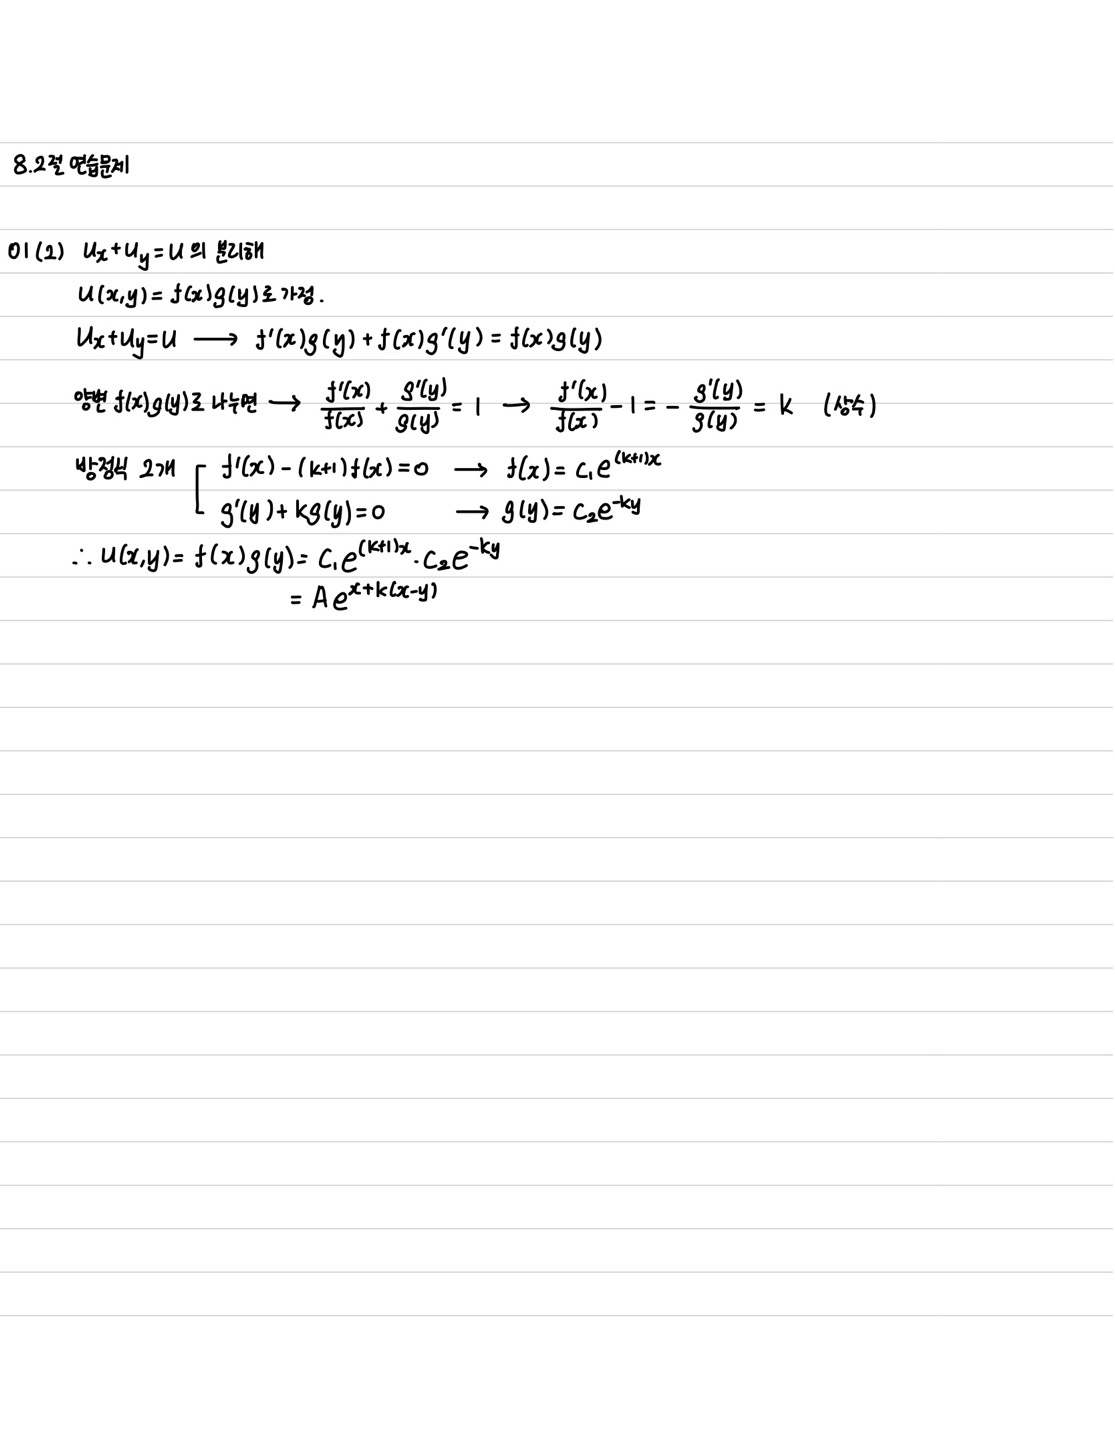 8.2절 연습문제
01(2) Ux+Uy=U의 분리해
U(x,y)=f(x)g(y)로 가정.
Ux+Uy=U ⟶ f'(x)g(y)+f(x)g'(y)=f(x)g(y)
양변 f(x)g(y)로 나누면 ⟶ f'(x)/f(x) + g'(y)/g(y) = 1 → f'(x)/f(x) - 1 = - g'(y)/g(y) = k (상수)
방정식 2개 [ f'(x)-(k+1)f(x)=0 → f(x)=c₁e^(k+1)x
g'(y)+kg(y)=0 → g(y)=c₂e^-ky
∴ U(x,y)=f(x)g(y)=c₁e^(k+1)x·c₂e^-ky
= Ae^x+k(x-y)